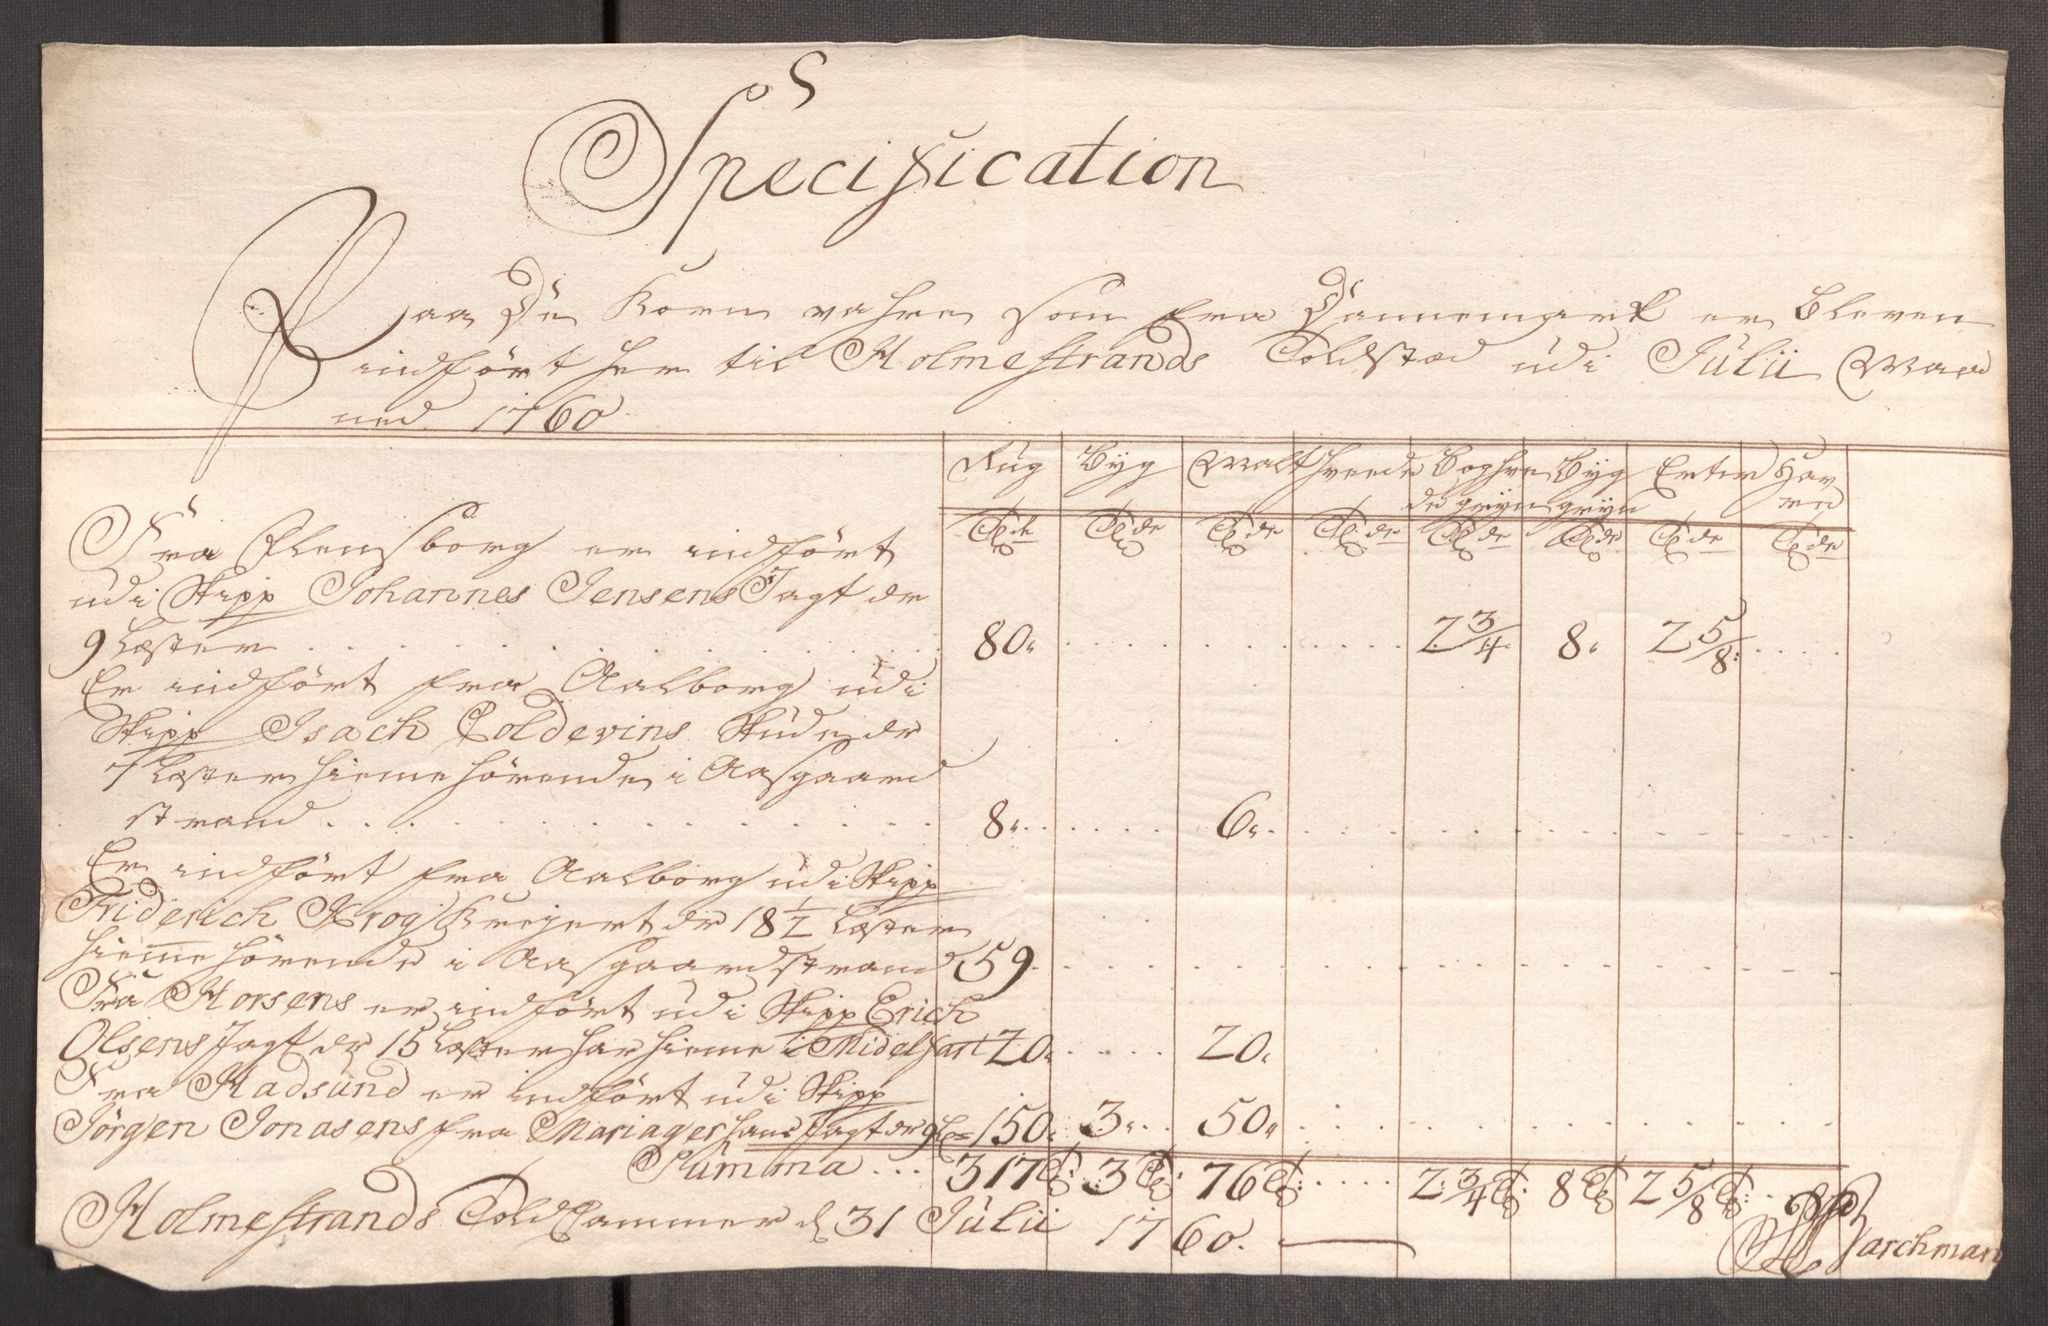 Specification
Paa De Korn vahre som fra Dannemark er bleven
indført her til Holmestrands Toldstæd udi Julii Maa
ned 1760
Rug Byg Malt hvede Boghve Byg Erter Hav
de gryn gryn ren
Td:r Td:r Td:r Td:r Td:r Td:r Td:r Td:r
Fra Flensborg er indført
udi Skipp Johannes Jensens Jagt dr
9 Læster 80 2 3/4 8 2 5/8
Er indført fra Aalborg udi
Skipp Isach Coldevins Skude dr
7 Læster hiemehørende i Aasgaard
strand 8 6
Er indført fra Aalborg udi Skipp
Friderich Krog Kreyert dr 18 1/2 Læster
hiemehørende i Aasgaardstrand 59
Fra Horsens er indført udi Skipp Erich
Olsens Jagt dr 15 Læster har hieme i Midelfart 20 20
Fra Hadsund er indført udi Skipp
Jørgen Jonasens fra Mariager hans Jagt dr 9 Lr 150 3 50
Summa 317 Tr 3 Tr 76 Tr 2 3/4 Tr 8 Tr 2 5/8 Tr
Holmestrands Told Cammer d 31 Julii 1760.
Barchman